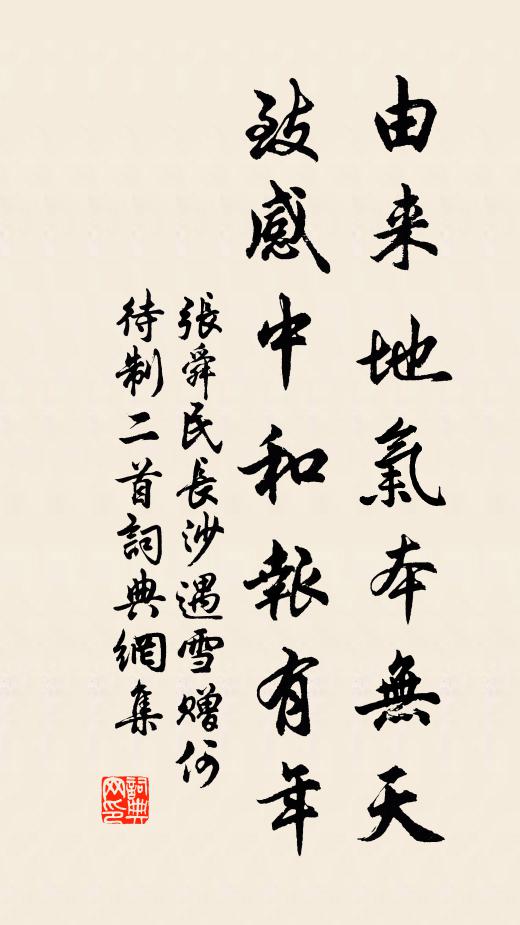 由来地氣本無天
致感中和報有年
張舜民長沙遇雪赠何
待制二首詞典網集
詞典网印